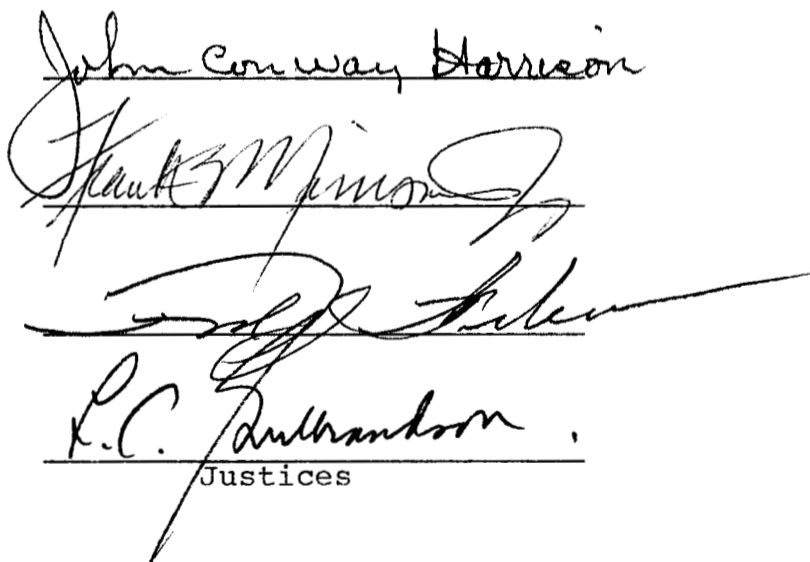 John Conway Harrison
Frank B Morrison Jr.
L.C. Gulbrandson.
Justices